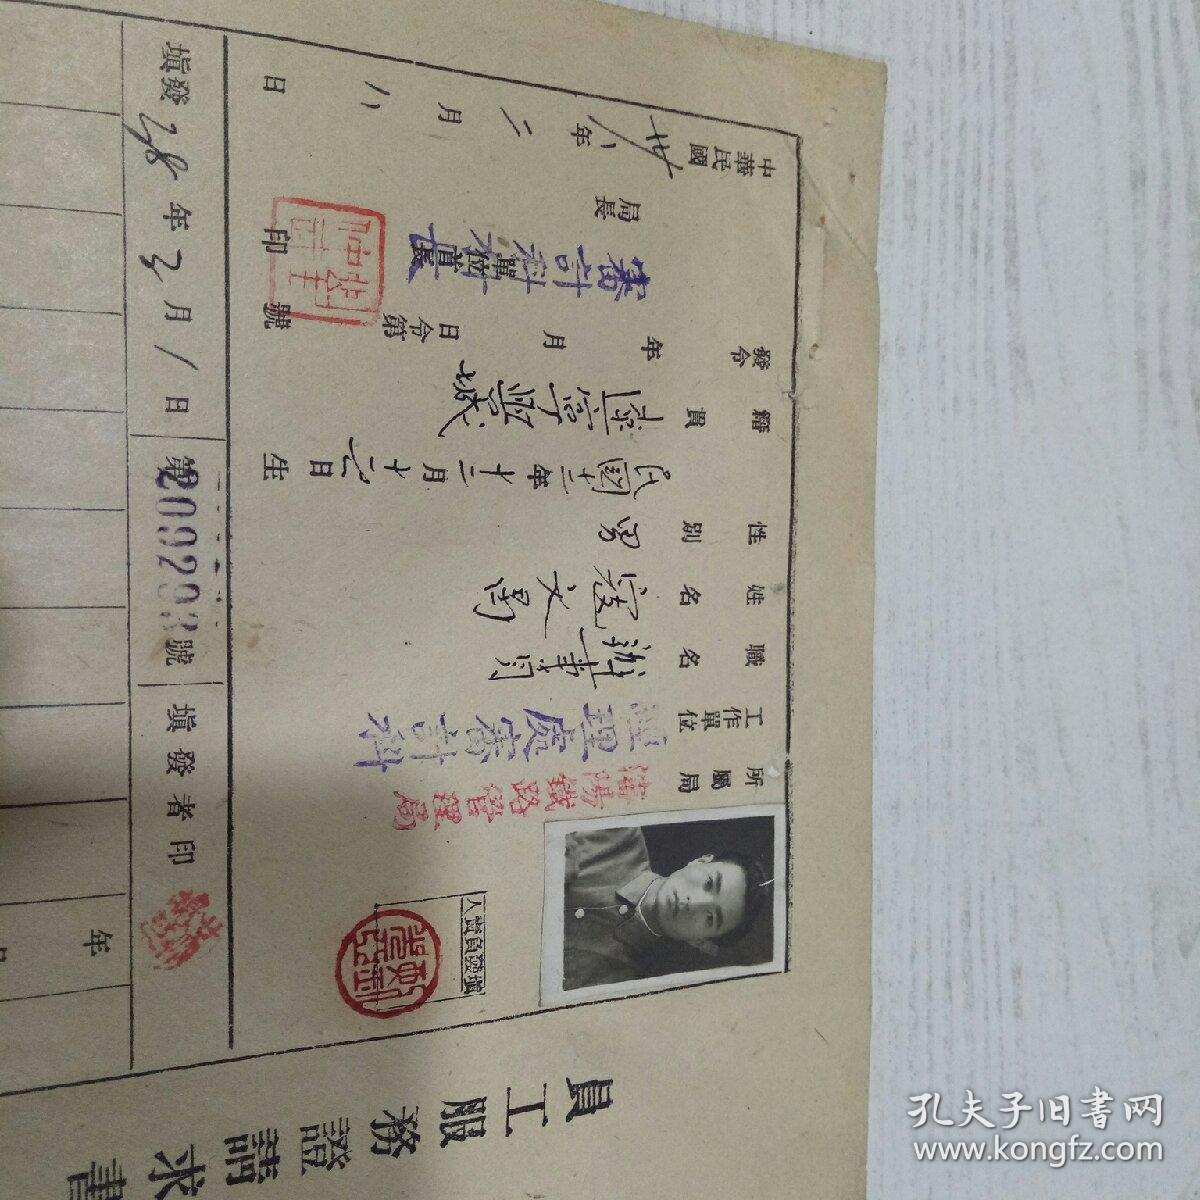 員工服務證請求書
所屬局
瀋陽鐵路管理局
工作單位
經理處審計科
職名
姓名
寇文
性別
男
民國十二年十二月十六日生
籍貫
遼寧
城
發令
年
月
日令第
號
局長
單位首長
審計科
印
中華民國
卅八年二月八日
填發負責人
填發者印
第209293號
填發 38年2月1日
年
孔夫子旧书网
www.kongfz.com